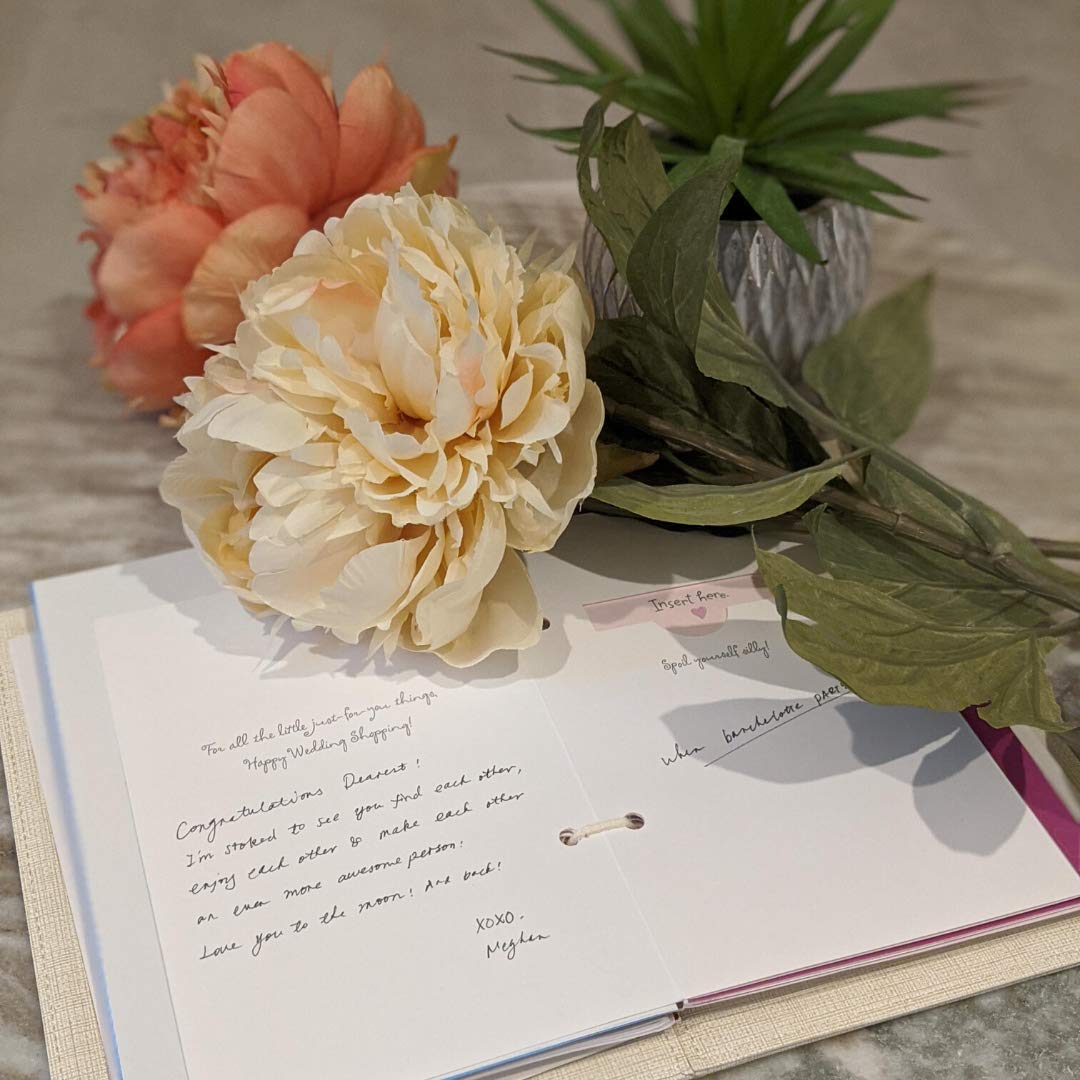 For all the little just-for-you things,
Happy Wedding Shopping!
Congratulations Dearest!
I'm stoked to see you find each other,
enjoy each other & make each other
an even more awesome person!
Love you to the moon! And back!
XOXO.
Meghan
Insert here.
Spoil yourself silly!
When banchelotte